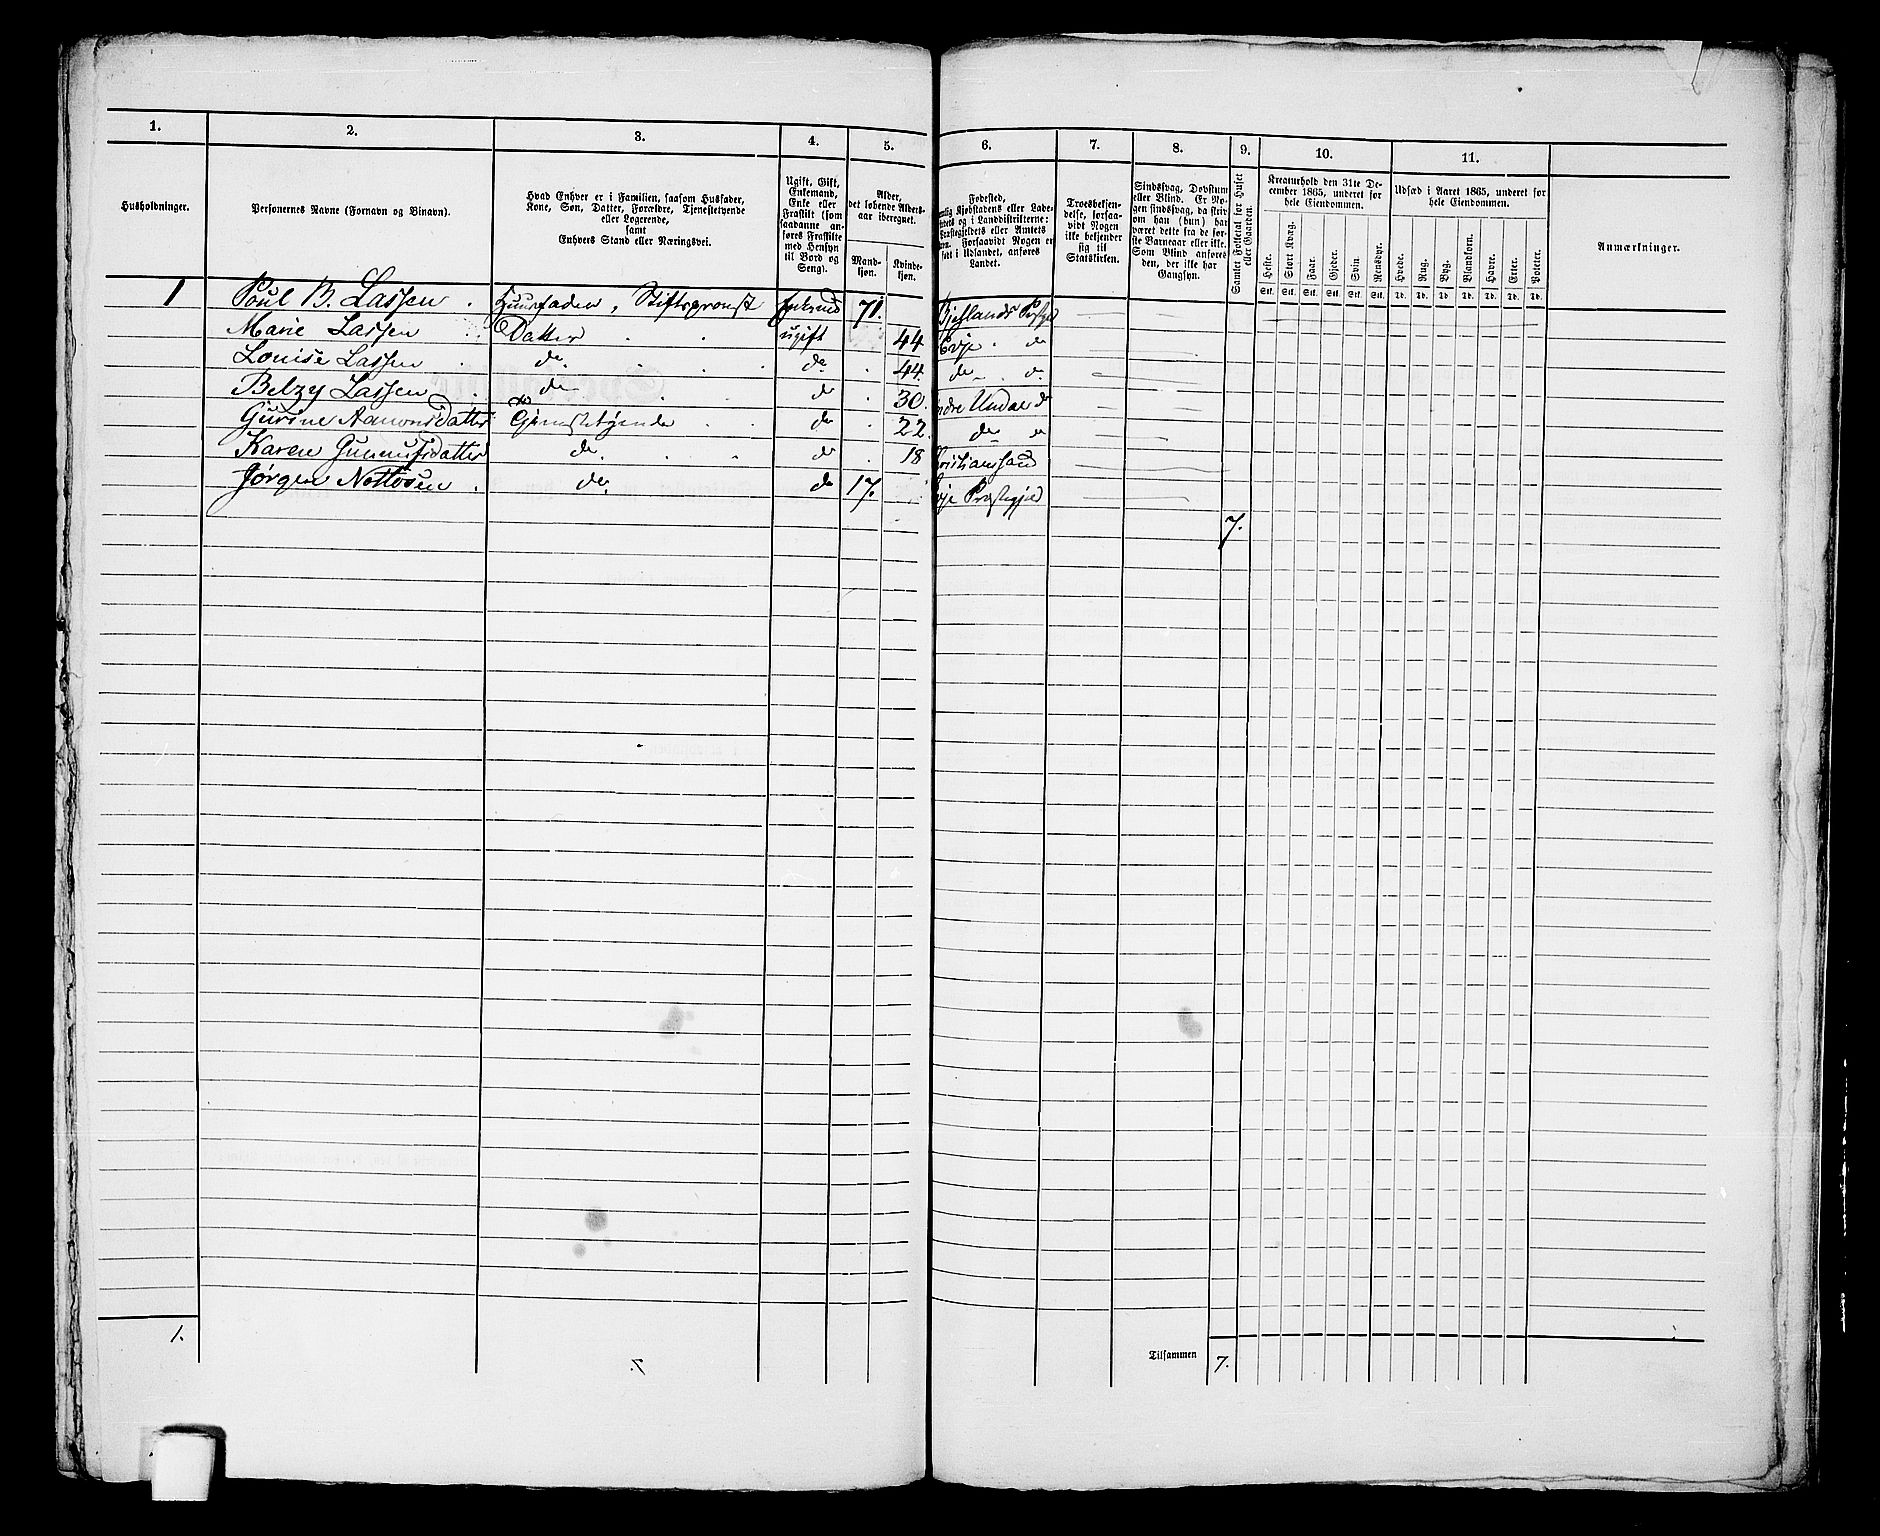 1. 2. 3. 4. 5. 6. 7. 8. 9. 10. 11.
Husholdninger.
Personernes Navne (Fornavn og Binavn).
Hvad Enhver er i Familien, saasom Husfader,
Kone, Søn, Datter, Forældre, Tjenestetyende
eller Logerende,
samt
Enhvers Stand eller Næringsvei.
Ugift, Gift,
Enkemand,
Enke eller
Fraskilt (som
saadanne an-
føres Fraskilte
med Hensyn
til Bord og
Seng).
Alder,
det løbende Alders-
aar iberegnet.
Mand-
kjøn.
Kvinde-
kjøn.
Fødested,
Kjøbstadens eller Lade-
og i Landdistrikterne:
Præstegjeldets eller Amtets
Forsaavidt Nogen er
født i Udlandet, anføres
Landet.
Troesbekjen-
delse, forsaa-
vidt Nogen
ikke bekjender
sig til
Statskirken.
Sindssvag, Døvstum
eller Blind. Er No-
gen sindssvag, da skriv
om han (hun) har
været dette fra de før-
ste Barneaar eller ikke.
Som Blind anføres
den, der ikke har
Gangsyn.
Samlet Folketal for Huset
eller Gaarden.
Kreaturhold den 31te De-
cember 1865, underet for
hele Eiendommen.
Heste. Stort Kvæg. Faar. Gjeder. Svin. Rensdyr.
Stk. Stk. Stk. Stk. Stk. Stk.
Udsæd i Aaret 1865, underet for
hele Eiendommen.
Hvede. Rug. Byg. Blandkorn. Havre. Erter. Poteter.
Td. Td. Td. Td. Td. Td. Td.
Anmærkninger.
1 Poul B. Lassen Huusfader, Stiftsprovst Enkemd 71. Bjellands Prstgjd
Marie Lassen Datter ugift 44 Evje do
Louise Lassen do do 44. do do
Betzy Lassen do do 30. Undal do
Gurine Aamonsdatter Tjenestetyende do 22. do do
Karen Gunnufsdatter do do 18
Jørgen do do 17. Præstegjeld
7.
1.
7.
Tilsammen 7.